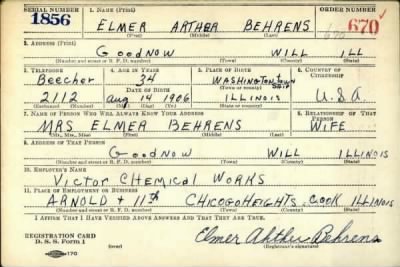 SERIAL NUMBER 1. NAME (Print) ORDER NUMBER
1856 ELMER ARTHER BEHRENS 670
(First) (Middle) (Last)
2. ADDRESS (Print)
GOODNOW WILL ILL
(Number and street or R. F. D. number) (Town) (County) (State)
3. TELEPHONE 4. AGE IN YEARS 5. PLACE OF BIRTH 6. COUNTRY OF CITIZENSHIP
Beecher 34 WASHINGTON TOWN SHIP
DATE OF BIRTH (Town or county)
2112 Aug 14 1906 ILLINOIS U.S.A.
(Exchange) (Number) (Mo.) (Day) (Yr.) (State or country)
7. NAME OF PERSON WHO WILL ALWAYS KNOW YOUR ADDRESS 8. RELATIONSHIP OF THAT PERSON
MRS ELMER BEHRENS WIFE
(Mr., Mrs., Miss) (First) (Middle) (Last)
9. ADDRESS OF THAT PERSON
GOODNOW WILL ILLINOIS
(Number and street or R. F. D. number) (Town) (County) (State)
10. EMPLOYER'S NAME
VICTOR CHEMICAL WORKS
11. PLACE OF EMPLOYMENT OR BUSINESS
ARNOLD + 11th CHICOGO HEIGHTS, COOK ILLINOIS
(Number and street or R. F. D. number) (Town) (County) (State)
I AFFIRM THAT I HAVE VERIFIED ABOVE ANSWERS AND THAT THEY ARE TRUE.
REGISTRATION CARD
D. S. S. Form 1 (over) Elmer Arthur Behrens
(Registrant's signature)